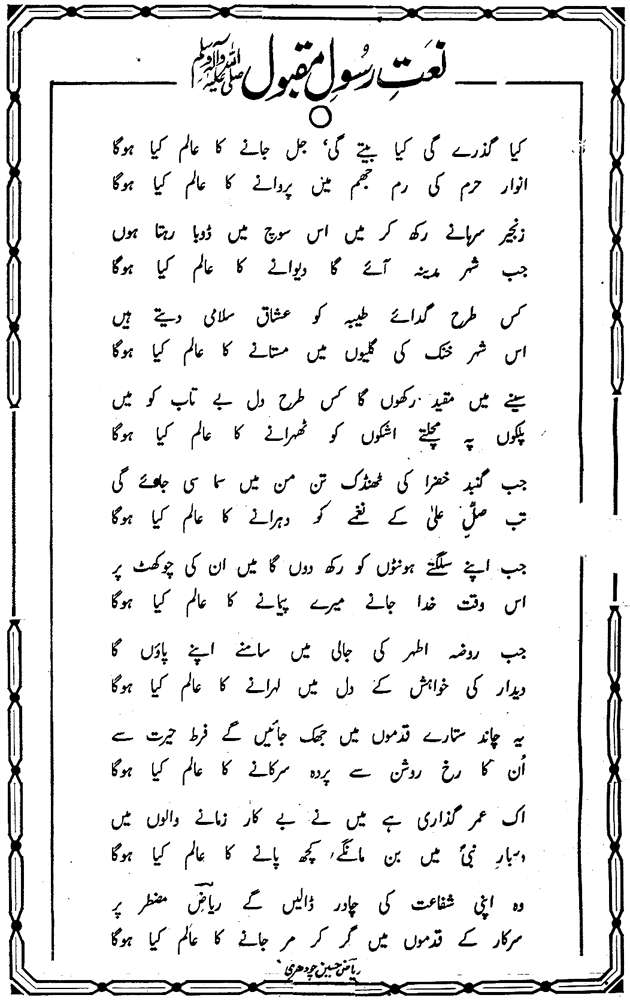 نعتِ رسولِ مقبول صلی اللہ علیہ وآلہ وسلم
کیا گذرے گی کیا بیتے گی، جل جانے کا عالم کیا ہوگا
انوار حرم کی رم جھم میں پروانے کا عالم کیا ہوگا
زنجیر سرہانے رکھ کر میں اس سوچ میں ڈوبا رہتا ہوں
جب شہر مدینہ آئے گا دیوانے کا عالم کیا ہوگا
کس طرح گدائے طیبہ کو عشاق سلامی دیتے ہیں
اس شہر خنک کی گلیوں میں مستانے کا عالم کیا ہوگا
سینے میں مقید رکھوں گا کس طرح دل بے تاب کو میں
پلکوں پہ مچلتے اشکوں کو ٹھہرانے کا عالم کیا ہوگا
جب گنبد خضرا کی ٹھنڈک تن من میں سما سی جائے گی
تب صلِّ علیٰ کے نغمے کو دہرانے کا عالم کیا ہوگا
جب اپنے سلگتے ہونٹوں کو رکھ دوں گا میں ان کی چوکھٹ پر
اس وقت خدا جانے میرے پیمانے کا عالم کیا ہوگا
جب روضہ اطہر کی جالی میں سامنے اپنے پاؤں گا
دیدار کی خواہش کے دل میں لہرانے کا عالم کیا ہوگا
یہ چاند ستارے قدموں میں جھک جائیں گے فرط حیرت سے
اُن کا رخ روشن سے پردہ سرکانے کا عالم کیا ہوگا
اک عمر گذاری ہے میں نے بے کار زمانے والوں میں
دربارِ نبیؐ میں بن مانگے، کچھ پانے کا عالم کیا ہوگا
وہ اپنی شفاعت کی چادر ڈالیں گے ریاضؔ مضطر پر
سرکار کے قدموں میں گر کر مر جانے کا عالم کیا ہوگا
ریاض حسین چودھری